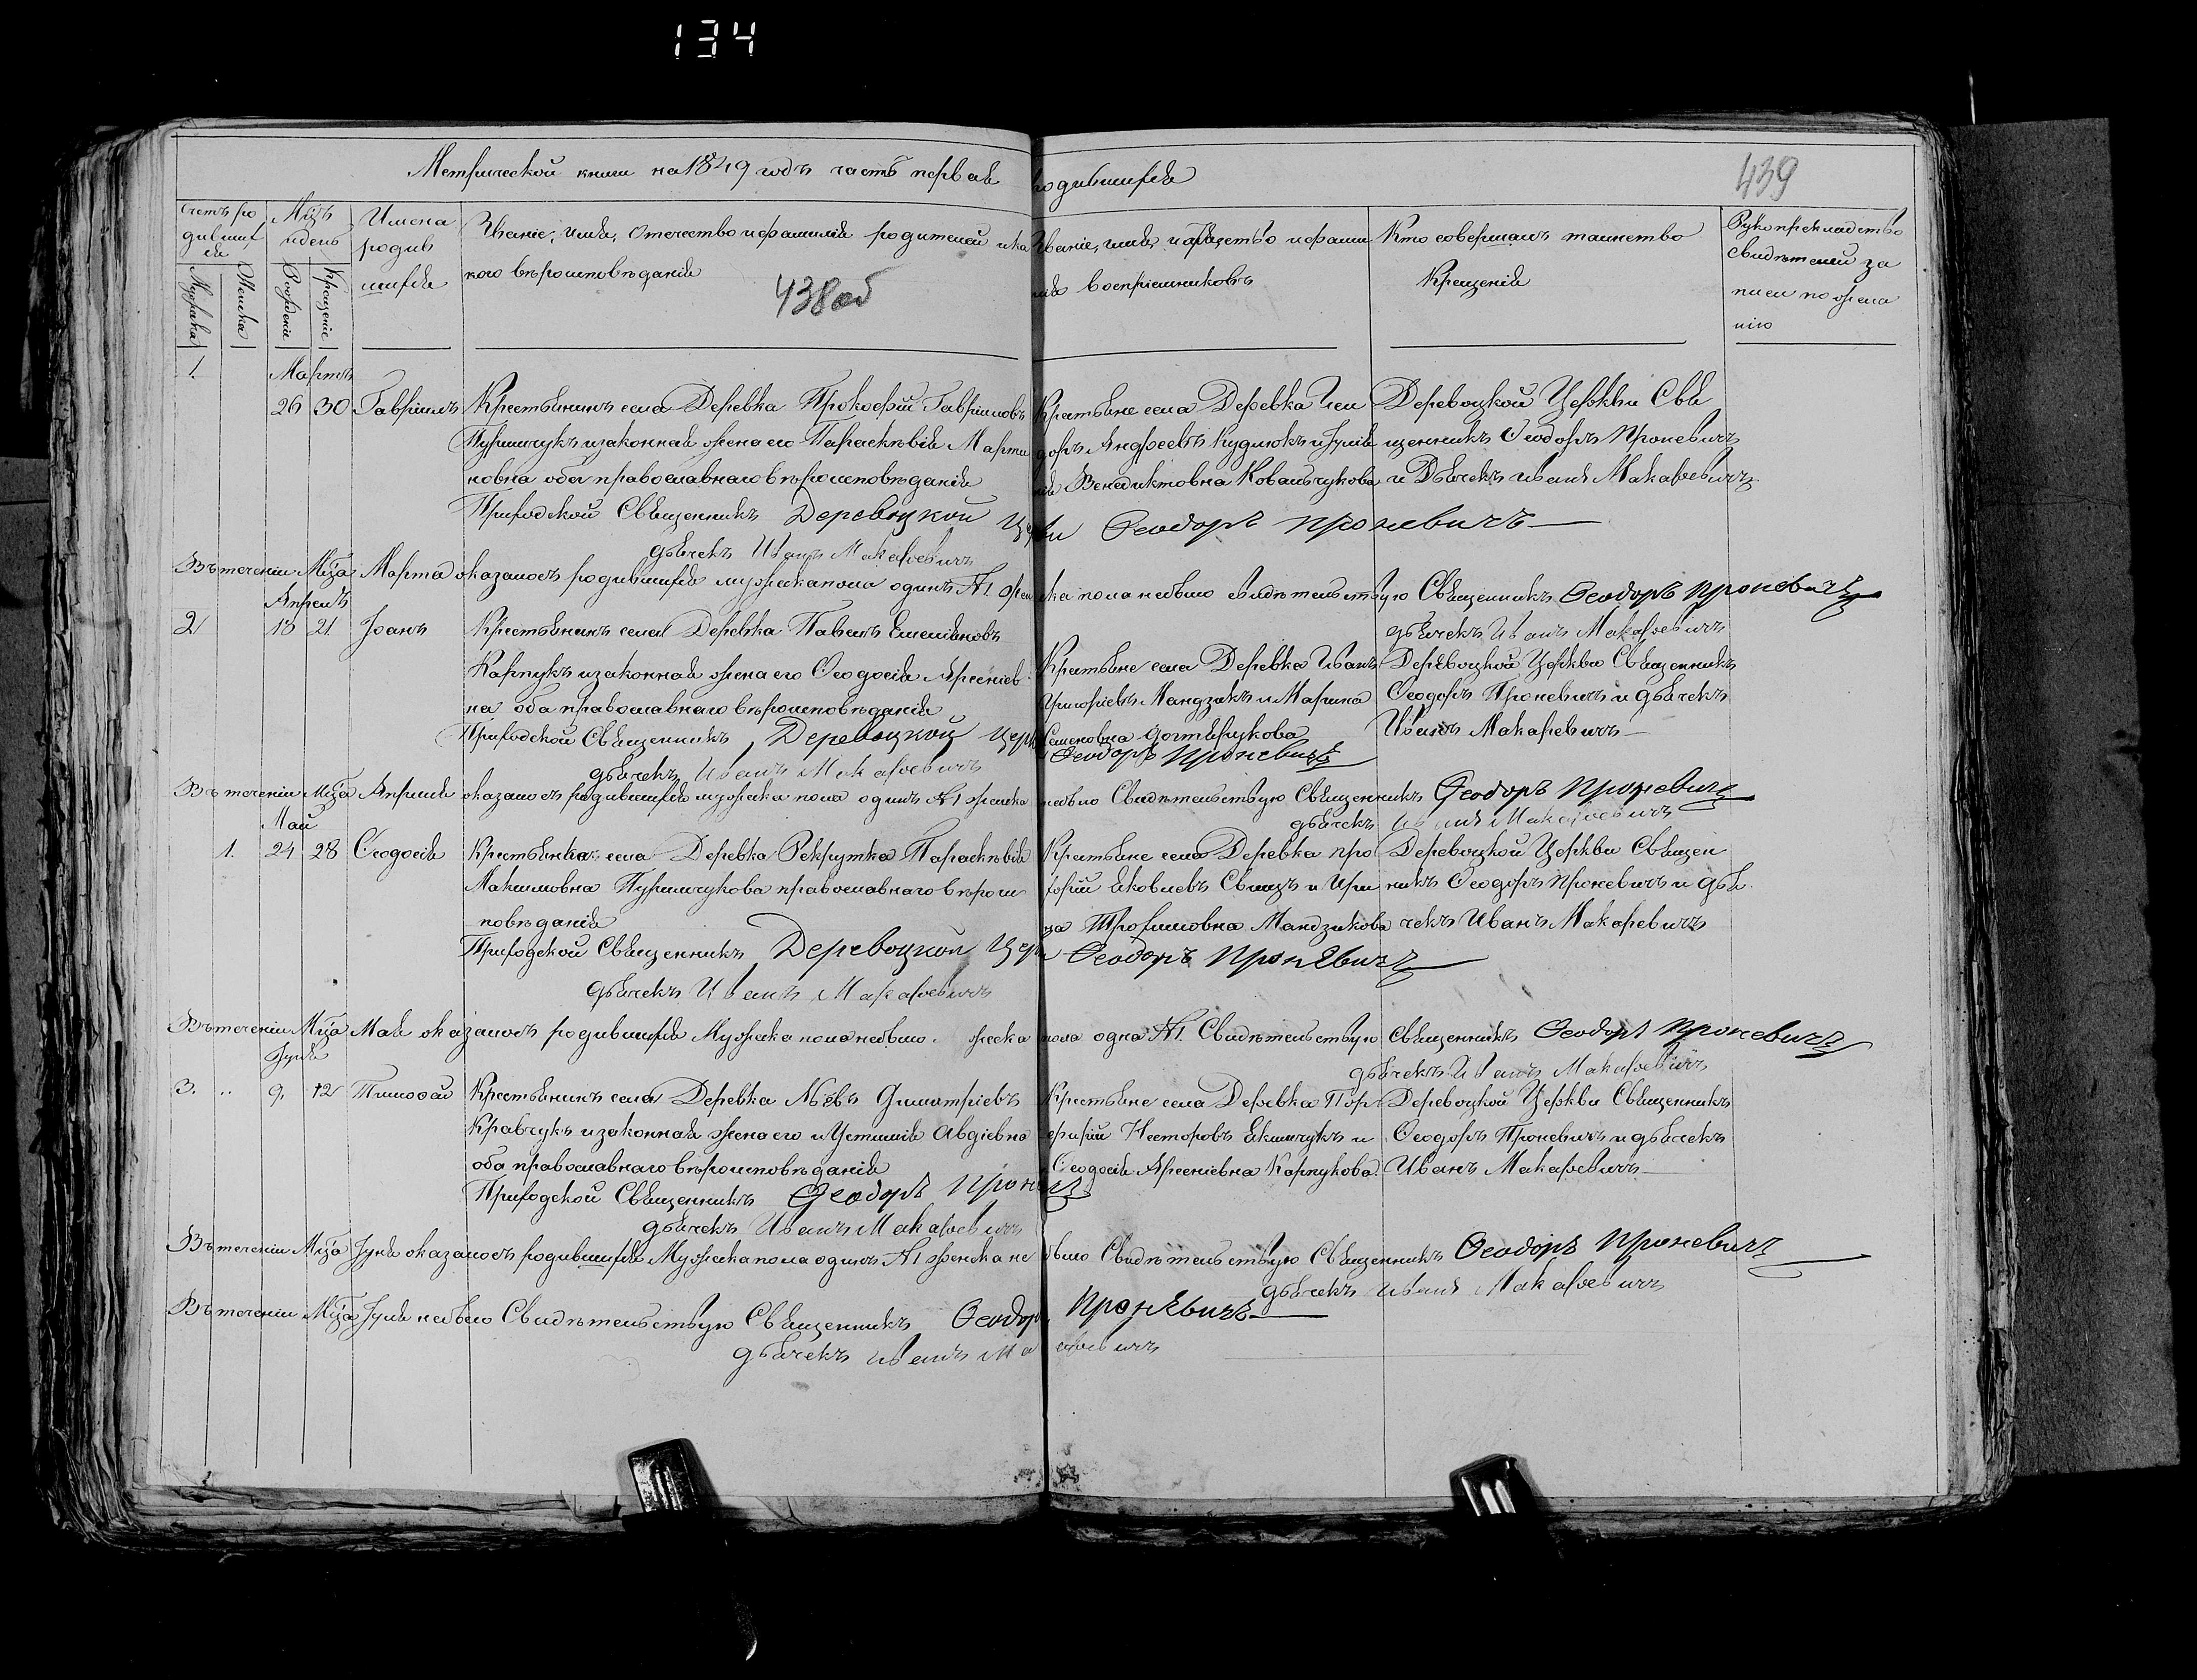 134
Метрической книги на 1849 годъ часть первая родившихся
439
Счетъ родившихся
Мужеска
Женска
Мцъ и день
Рожденія
Крещенія
Имена родившихся
Званіе, имя, отечество и фамилія родителей и какого вѣроисповѣданія
438об
Званіе, имя, и отечество и фамилія воспріемниковъ
Кто совершалъ таинство Крещенія
Рукоприкладство свидѣтелей записи по желанію
1. Мартъ
26 30 Гавріилъ Крестьянинъ села Деревка Прокофій Гавріиловъ
Пуримчукъ и законная жена его Параскѣвія Марти
новна оба православнаго вѣроисповѣданія
Крестьяне села Деревка Иси
доръ Андреевъ Кудлюкъ и Іулія
нія Венедиктовна Ковальчукова
Деревоцкой Церкви Свя
щенникъ Ѳеодоръ Проневичъ
и Дьячекъ Иванъ Макаревичъ
Приходской Священникъ Деревоцкой Церкви Ѳеодоръ Проневичъ
дьячекъ Иванъ Макаревичъ
Въ теченіи Мца Марта оказалось родившихся мужеска пола одинъ №1 женска пола небыло свидѣтельствую Священникъ Ѳеодоръ Проневичъ
дьячекъ Иванъ Макаревичъ
Апрель
2 18 21 Іоанъ Крестьянинъ села Деревка Павелъ Емеліановъ
Карпукъ и законная жена его Ѳеодосія Арсеніев
на оба православнаго вѣроисповѣданія
Крестьяне села Деревка Иванъ
Григоріевъ Мандзикъ и Марина
Семеновна
Деревоцкой Церкви Священникъ
Ѳеодоръ Проневичъ и дьячекъ
Иванъ Макаревичъ
Приходской Священникъ Деревоцкой Церкви Ѳеодоръ Проневичъ
дьячекъ Иванъ Макаревичъ
Въ теченіи Мца Апрѣля оказалось родившихся мужеска пола одинъ №1 женска небыло Свидѣтельствую Священникъ Ѳеодоръ Проневичъ
дьячекъ Иванъ Макаревичъ
Май
1. 24 28 Ѳеодосія Крестьянка села Деревка Рекрутка Параскѣвія
Максимовна Пуримчукова православнаго вѣроис
повѣданія
Крестьяне села Деревка Про
кофій Яковлевъ и Ири
на Трофимовна Мандзикова
Деревоцкой Церкви Священ
никъ Ѳеодоръ Проневичъ и дья
чекъ Иванъ Макаревичъ
Приходской Священникъ Деревоцкой Церкви Ѳеодоръ Проневичъ
дьячекъ Иванъ Макаревичъ
Въ теченіи Мца Мая оказалось родившихся Мужеска пола небыло женска пола одна №1. Свидѣтельствую Священникъ Ѳеодоръ Проневичъ
дьячекъ Иванъ Макаревичъ
Іуня
3. 9. 12 Тимоѳей Крестьянинъ села Деревка Левъ Димитріевъ
Кравчукъ и законная жена его Иустинія Авдіевна
оба православнаго вѣроисповѣданія
Крестьяне села Деревка Пор
фирій Несторовъ Якимчукъ и
Ѳеодосія Арсеніевна Карпукова
Деревоцкой Церкви Священникъ
Ѳеодоръ Проневичъ и дьячекъ
Иванъ Макаревичъ
Приходской Священникъ Ѳеодоръ Проневичъ
дьячекъ Иванъ Макаревичъ
Въ теченіи Мца Іуня оказалось родившихся Мужеска пола одинъ №1 женска небыло Свидѣтельствую Священникъ Ѳеодоръ Проневичъ
дьячекъ Иванъ Макаревичъ
Въ теченіи Мца Іуля небыло Свидѣтельствую Священникъ Ѳеодоръ Проневичъ
дьячекъ Иванъ Макаревичъ